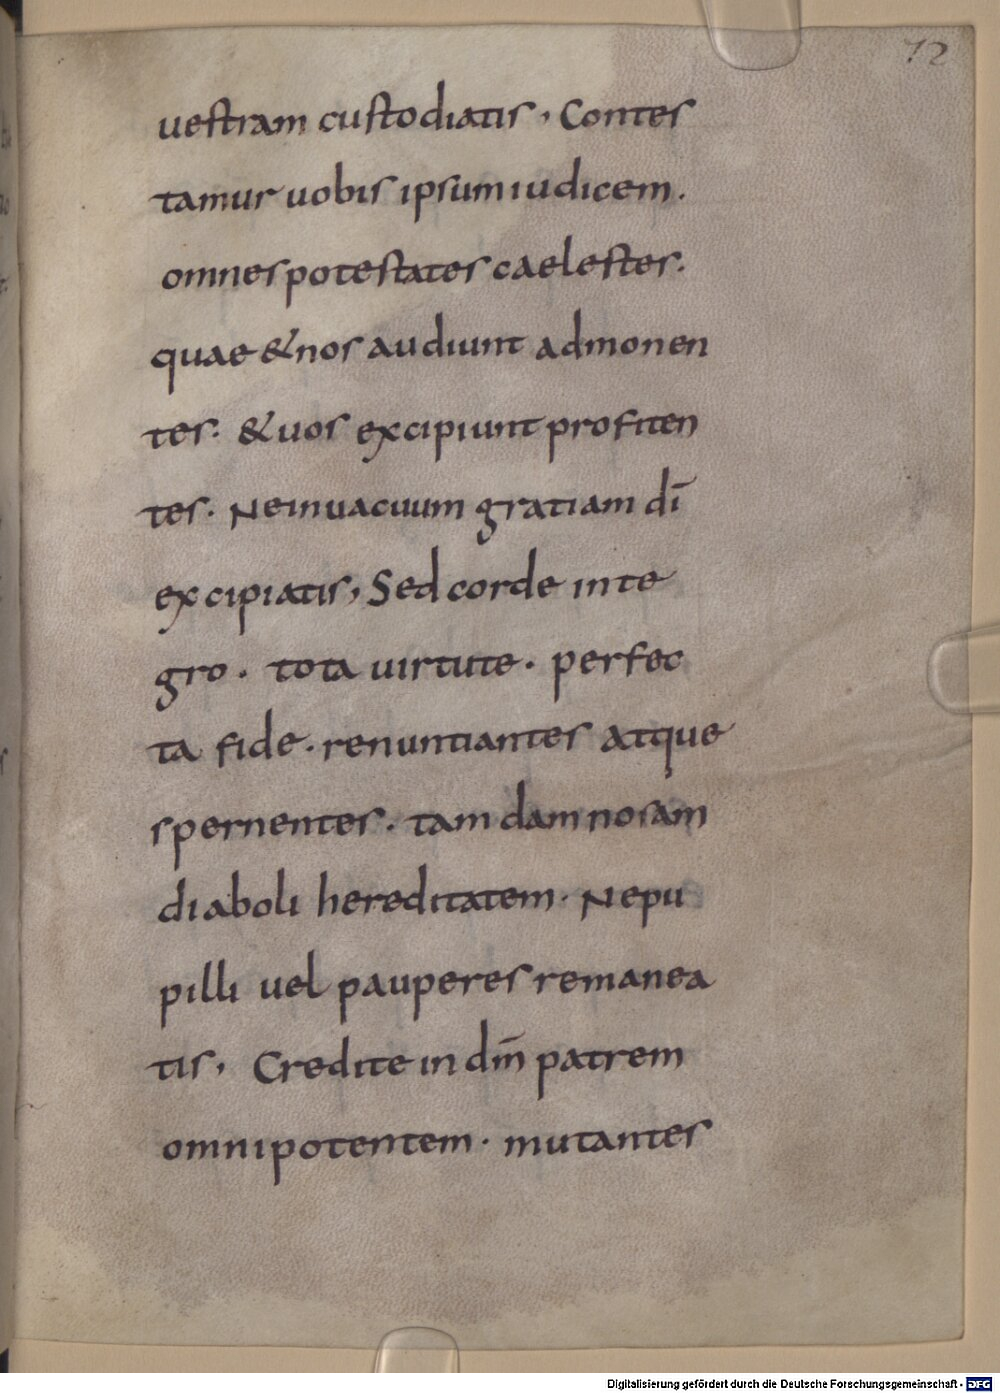 72
uestram custodiatis, Contes
tamur uobis ipsum iudicem.
omnes potestates caelestes.
quae & nos audiunt admonen
tes. & uos excipiunt profiten
tes. Ne in uacuum gratiam dī
excipiatis, Sed corde inte
gro. tota uirtute. perfec
ta fide. renuntiantes atque
spernentes. tam damnosam
diaboli hereditatem. Ne pu
pilli uel pauperes remanea
tis, Credite in dm̄ patrem
omnipotentem. mutantes
Digitalisierung gefördert durch die Deutsche Forschungsgemeinschaft - DFG